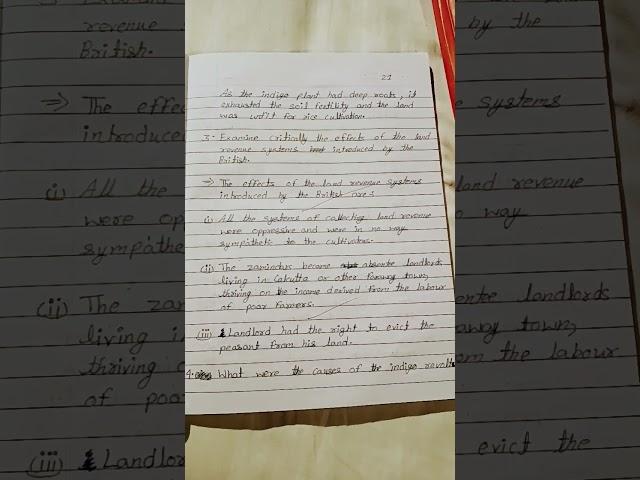 21
As the indigo plant had deep roots, it
exhausted the soil fertility and the land
was unfit for rice cultivation.
3. Examine critically the effects of the land
revenue systems introduced by the
British.
⇒ The effects of the land revenue systems
introduced by the British are:
(i) All the systems of collecting land revenue
were oppressive and were in no way
sympathetic to the cultivators.
(ii) The zamindars became absente landlords
living in Calcutta or other faraway town,
thriving on the income derived from the labour
of poor farmers.
(iii) Landlord had the right to evict the
peasant from his land.
4. What were the causes of the indigo revolt